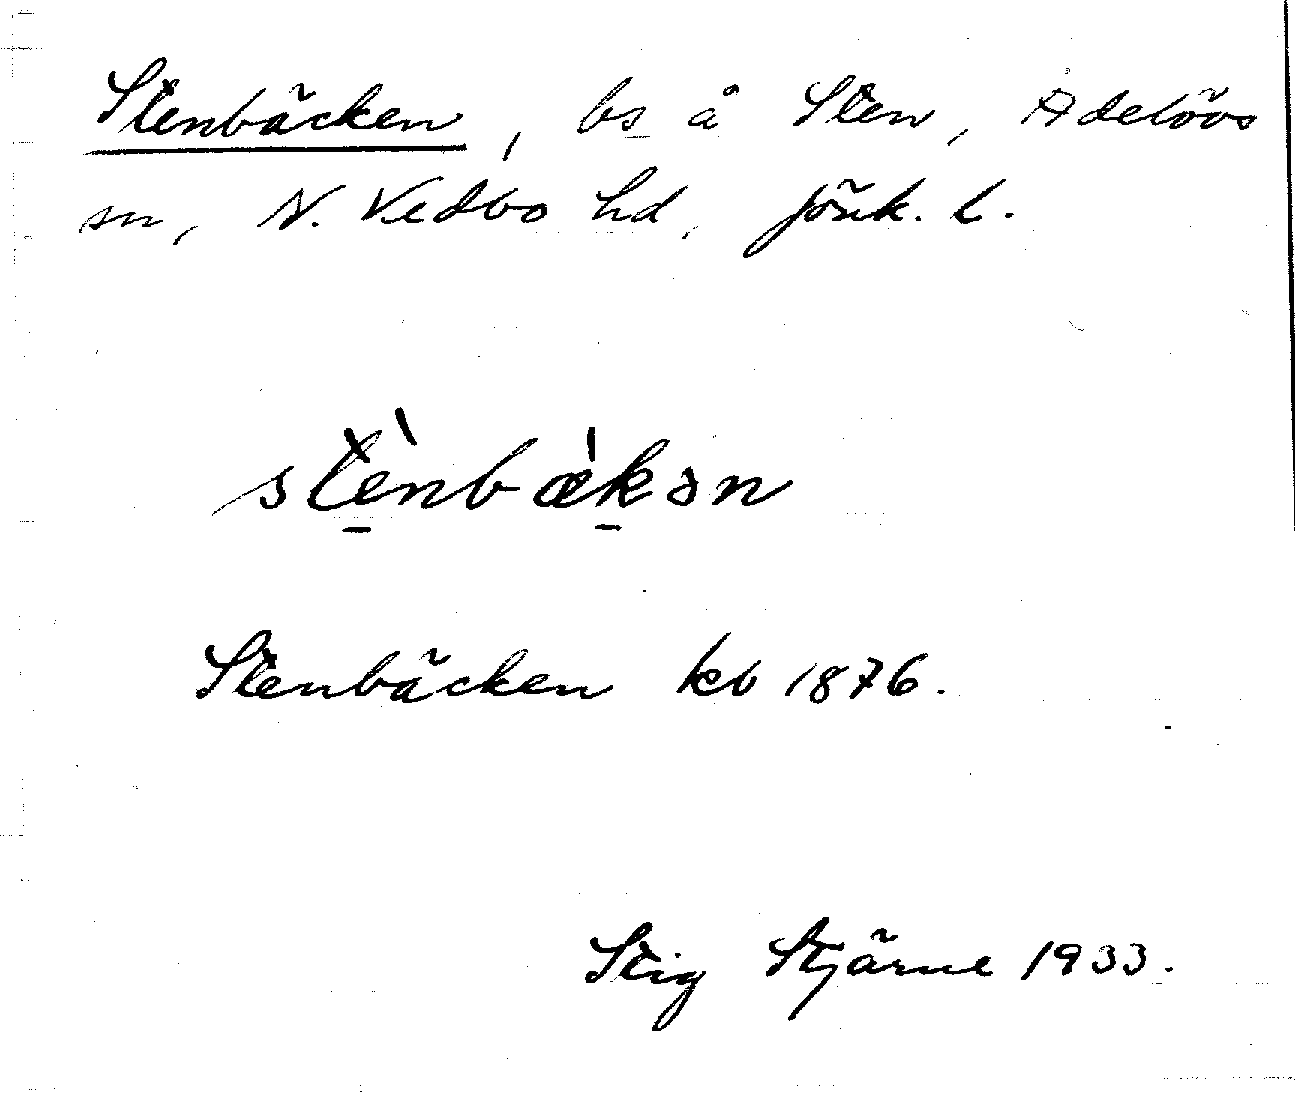 Stenbäcken, bs å Sten, Adelövs
sn, N. Vedbo hd, Jönk. l.
stè̠nbæ̍k̠ən
Stenbäcken kb 1876.
Stig Stjärne 1933.